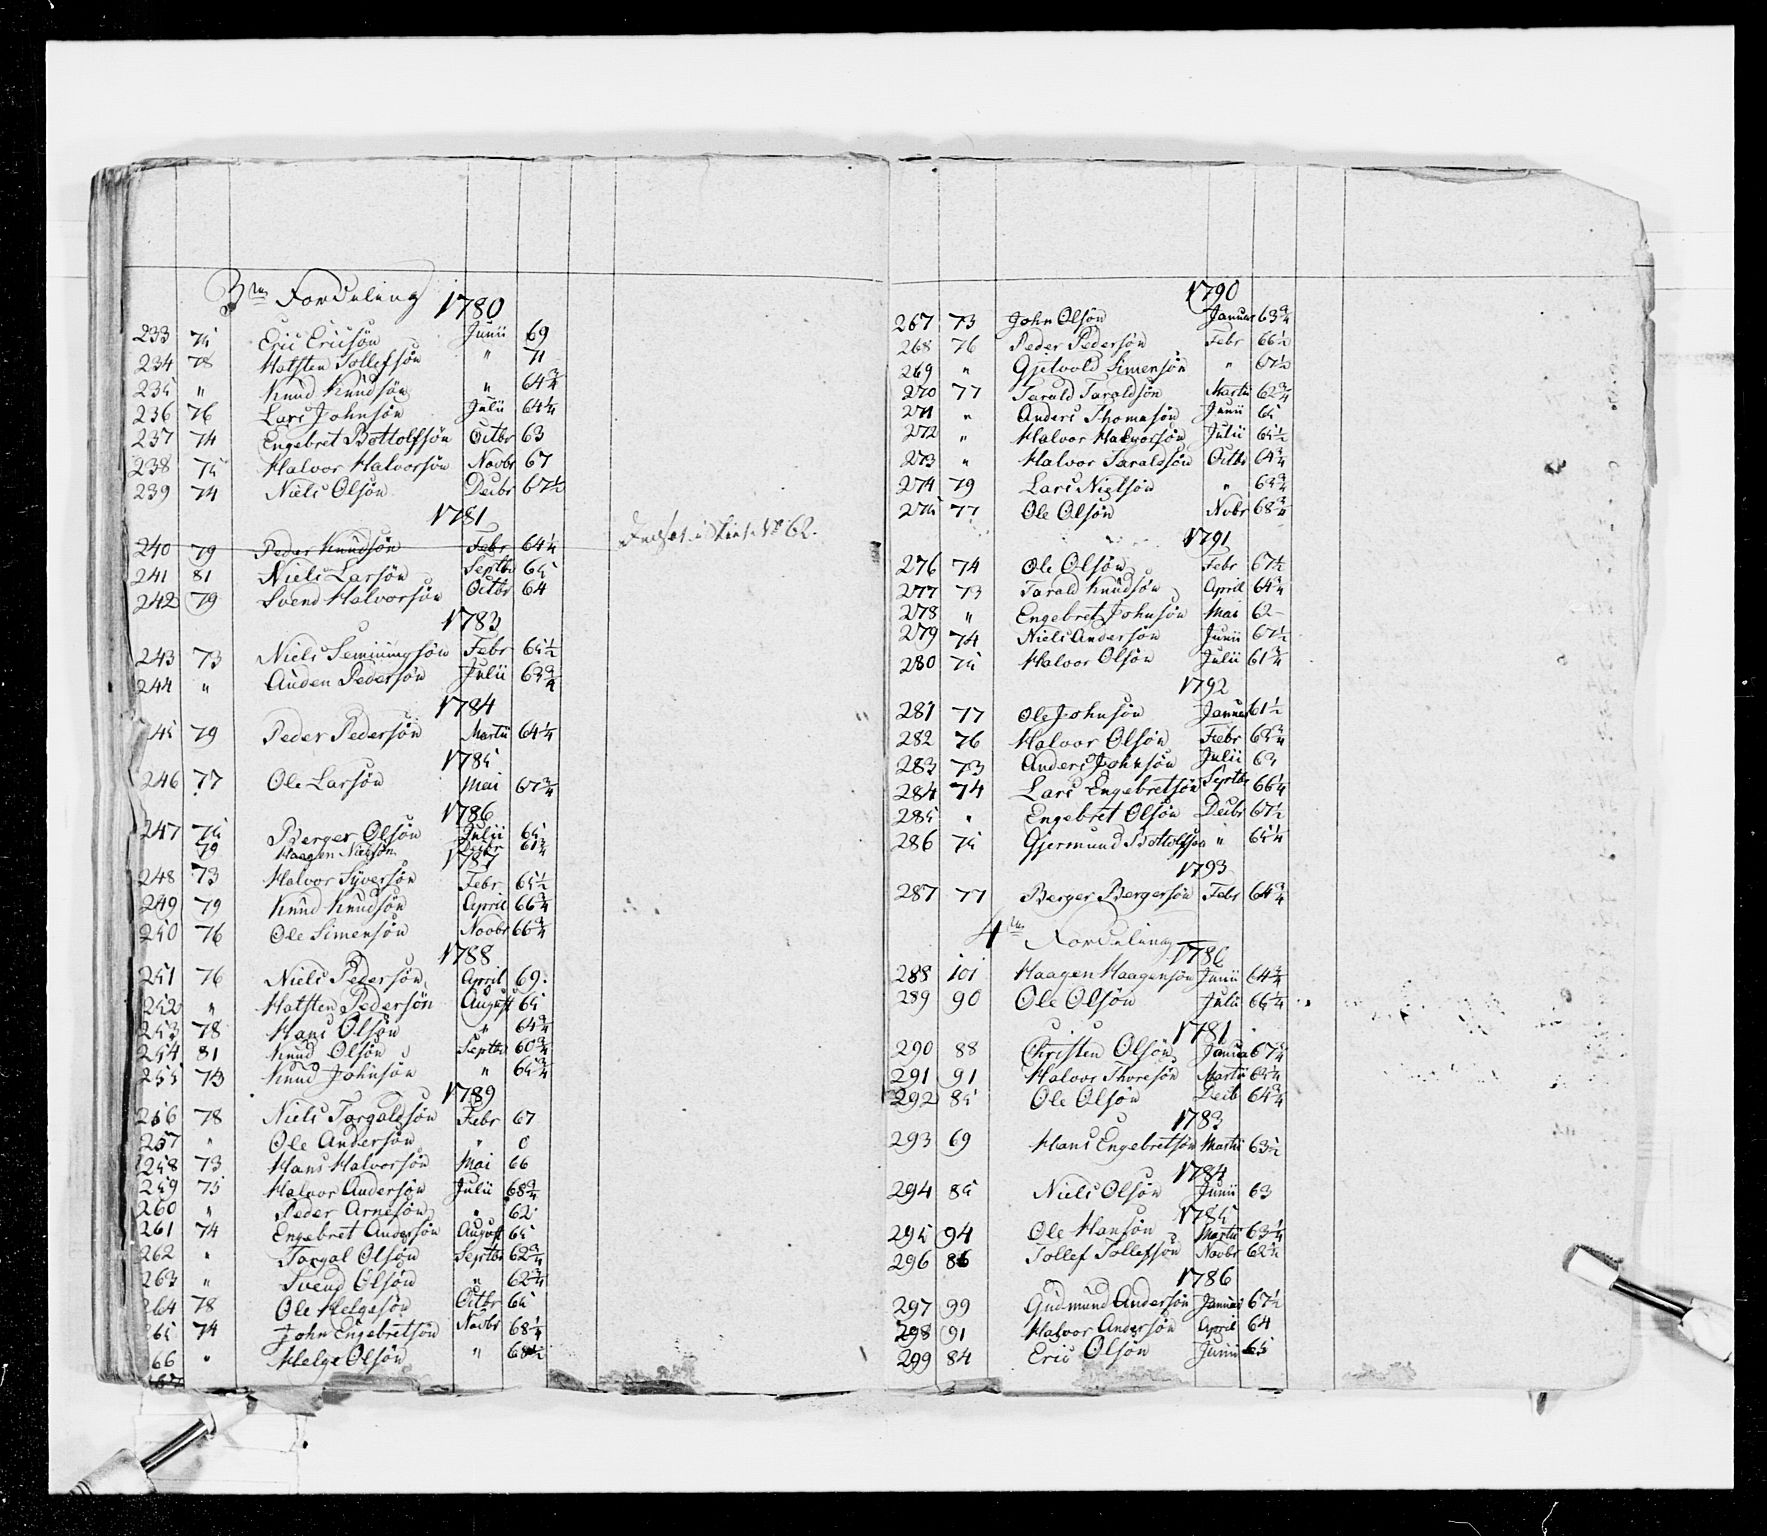 3die Fordeling
1780
233 75 Eric Ericsön Junii 69
234 78 Holsten Tollefsön " 71
235 " Knud Knudsön " 64¾
236 76 Lars Johnsön Julii 64¼
237 74 Engebret Bottolfsön Octbr 63
238 75 Halvor Halvorsön Novbr 67
239 74 Niels Olsön Decbr 67½
1781
240 79 Peder Knudsön Febr 64¼ No 62.
241 81 Niels Larsön Septbr 65
242 79 Svend Halvorsön Octbr 64
1783
243 73 Niels Semmingsön Febr 65½
244 " Auden Pedersön Julii 63¾
1784
245 79 Peder Pedersön Martii 64¼
1785
246 77 Ole Larsön Mai 67¾
1786
247 75 Berger Olsön Julii 65
79 Haagen Nielsön Decbr 61¾
1787
248 73 Halvor Syversön Febr 65½
249 79 Knud Knudsön April 66¾
250 76 Ole Simensön Novbr 66¾
1788
251 76 Niels Pedersön April 69
252 " Holsten Pedersön August 65
253 78 Hans Olsön " 64¾
254 81 Knud Olsön Septbr 60¾
255 73 Knud Johnsön " 65¾
1789
256 78 Niels Torgalsön Febr 67
257 " Ole Andersön " 0
258 73 Hans Halvorsön Mai 66
259 75 Halvor Andersön Julii 68¾
260 " Peder Arnesön " 62
261 74 Engebret Andersön August 65
262 " Torgal Olsön Septbr 62¾
263 " Svend Olsön " 62¾
264 78 Ole Helgesön Octbr 65
265 74 John Engebretsön Novbr 68¼
66 " Helge Olsön " 68½
1790
267 73 John Olsön Januar 63¾
268 76 Peder Pedersön Febr 66½
269 " Gjetvold Simensön " 67½
270 77 Tarald Taraldsön Martii 62¾
271 " Anders Thomasön Junii 65
272 " Halvor Halvorsön Julii 65½
273 " Halvor Taraldsön Octbr 64¾
274 79 Lars Nielsön " 65¾
275 77 Ole Olsön Novbr 68¾
1791
276 74 Ole Olsön Febr 67½
277 73 Tarald Knudsön April 64¾
278 " Engebret Johnsön Mai 62
279 74 Niels Andersön Junii 67½
280 75 Halvor Olsön Julii 61¾
1792
281 77 Ole Johnsön Januar 61½
282 76 Halvor Olsön Febr 65¾
283 73 Anders Johnsön Julii 63
284 74 Lars Engebretsön Septbr 66¼
285 " Engebret Olsön Decbr 67½
286 75 Gjermund Bottolfsön " 65¼
1793
287 77 Berger Bergersön Febr 64¾
4de Fordeling
1786
288 101 Haagen Haagensön Junii 64¾
289 90 Ole Olsön Julii 66¼
1781
290 88 Christen Olsön Januar 67¼
291 91 Halvor Thoresön Martii 65¼
292 85 Ole Olsön Decb 64¾
1783
293 69 Hans Engebretsön Martii 63½
1784
294 85 Niels Olsön Junii 63
1785
295 94 Ole Hansön Martii 63¼
296 86 Tollef Tollefsön Novbr 62½
1786
297 99 Gudmund Andersön Januar 67½
298 91 Halvor Andersön April 64
299 84 Eric Olsön Junii 65